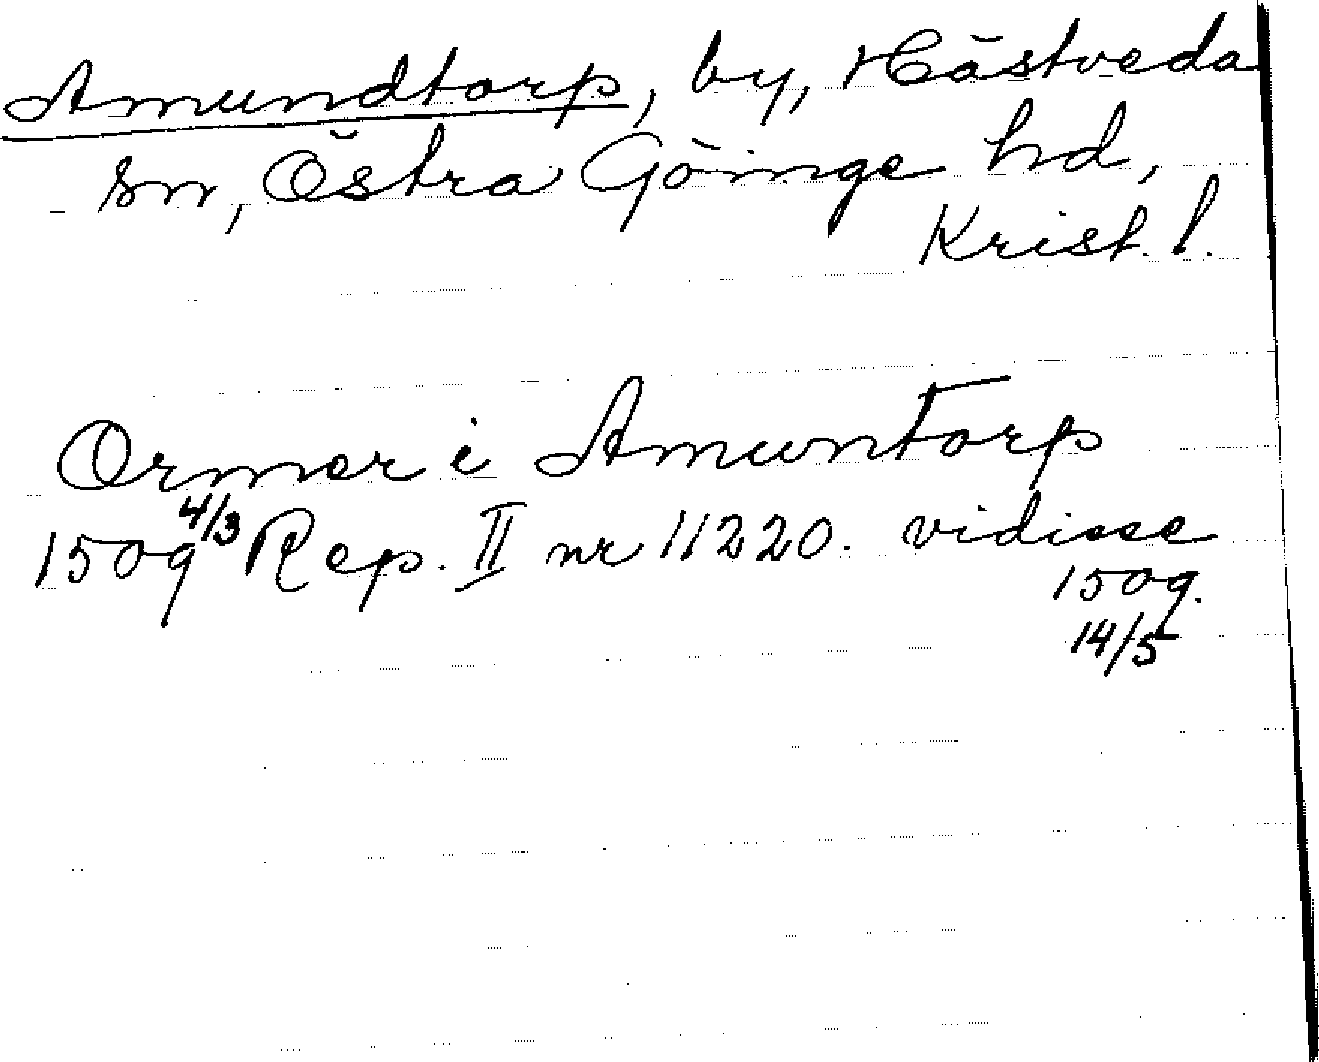 Amundtorp, by, Hästveda
sn, Östra Göinge hd,
Krist. l.
Ormer i Amuntorp
1509 4/3 Rep. II nr 11220. vidisse
1509.
14/5